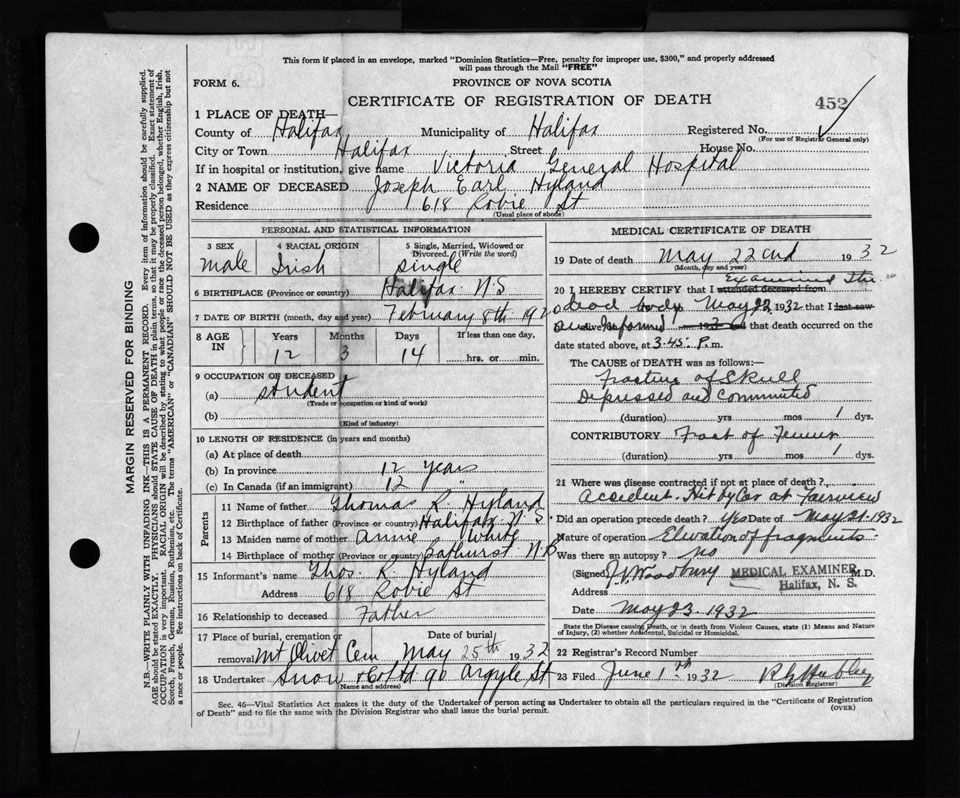 This form if placed in an envelope, marked "Dominion Statistics—Free, penalty for improper use, $300," and properly addressed
will pass through the Mail "FREE"
FORM 6.
PROVINCE OF NOVA SCOTIA
CERTIFICATE OF REGISTRATION OF DEATH
452
1 PLACE OF DEATH—
County of Halifax Municipality of Halifax Registered No.
(For use of Registrar General only)
City or Town Halifax Street House No.
If in hospital or institution, give name Victoria General Hospital
2 NAME OF DECEASED Joseph Earl Hyland
Residence 618 Robie St
(Usual place of abode)
PERSONAL AND STATISTICAL INFORMATION
3 SEX 4 RACIAL ORIGIN 5 Single, Married, Widowed or
Divorced. (Write the word)
male Irish single
6 BIRTHPLACE (Province or country) Halifax N.S
7 DATE OF BIRTH (month, day and year) February 8th 1920
8 AGE IN Years Months Days If less than one day,
12 3 14 hrs. or min.
9 OCCUPATION OF DECEASED
(a) student
(Trade or occupation or kind of work)
(b)
(Kind of industry)
10 LENGTH OF RESIDENCE (in years and months)
(a) At place of death
(b) In province 12 years
(c) In Canada (if an immigrant) 12 "
Parents
11 Name of father Thomas R. Hyland
12 Birthplace of father (Province or country) Halifax N S
13 Maiden name of mother Annie White
14 Birthplace of mother (Province or country) Bathurst N.B
15 Informant's name Thos. R. Hyland
Address 618 Robie St
16 Relationship to deceased Father
17 Place of burial, cremation or Date of burial
removal Mt Olivet Cem May 25th 1932
18 Undertaker Snow & Co Ltd 90 Argyle St
(Name and address)
MEDICAL CERTIFICATE OF DEATH
19 Date of death May 22nd 1932
(Month, day and year)
Examined the
20 I HEREBY CERTIFY that I attended deceased from
dead body May 22 1932 that I last saw
and informed 193 and that death occurred on the
date stated above, at 3.45. P. m.
The CAUSE OF DEATH was as follows:—
Fracture of Skull
Depressed and comminuted
(duration) yrs mos 1 dys.
CONTRIBUTORY Fract of Femur
(duration) yrs mos 1 dys.
21 Where was disease contracted if not at place of death?
Accident. Hit by Car at Fairview
Did an operation precede death? Yes Date of May 21. 1932
Nature of operation Elevation of fragments.
Was there an autopsy? no
(Signed) Woodbury MEDICAL EXAMINER M.D.
Address Halifax, N. S.
Date May 23. 1932
State the Disease causing Death, or in death from Violent Causes, state (1) Means and Nature
of Injury, (2) whether Accidental, Suicidal or Homicidal.
22 Registrar's Record Number
23 Filed June 1st 1932
(Division Registrar)
Sec. 46—Vital Statistics Act makes it the duty of the Undertaker of person acting as Undertaker to obtain all the particulars required in the "Certificate of Registration
of Death" and to file the same with the Division Registrar who shall issue the burial permit.
(OVER)
MARGIN RESERVED FOR BINDING
N.B.—WRITE PLAINLY WITH UNFADING INK—THIS IS A PERMANENT RECORD. Every item of information should be carefully supplied.
AGE should be stated EXACTLY. PHYSICIANS should STATE CAUSE OF DEATH in plain terms, so that it may be properly classified. Exact statement of
OCCUPATION is very important. RACIAL ORIGIN will be described by stating to what people or race the deceased person belonged, whether English, Irish,
Scotch, French, German, Russian, Ruthenian, etc. The terms "AMERICAN" or "CANADIAN" SHOULD NOT BE USED as they express citizenship but not
a race or people. See instructions on back of Certificate.